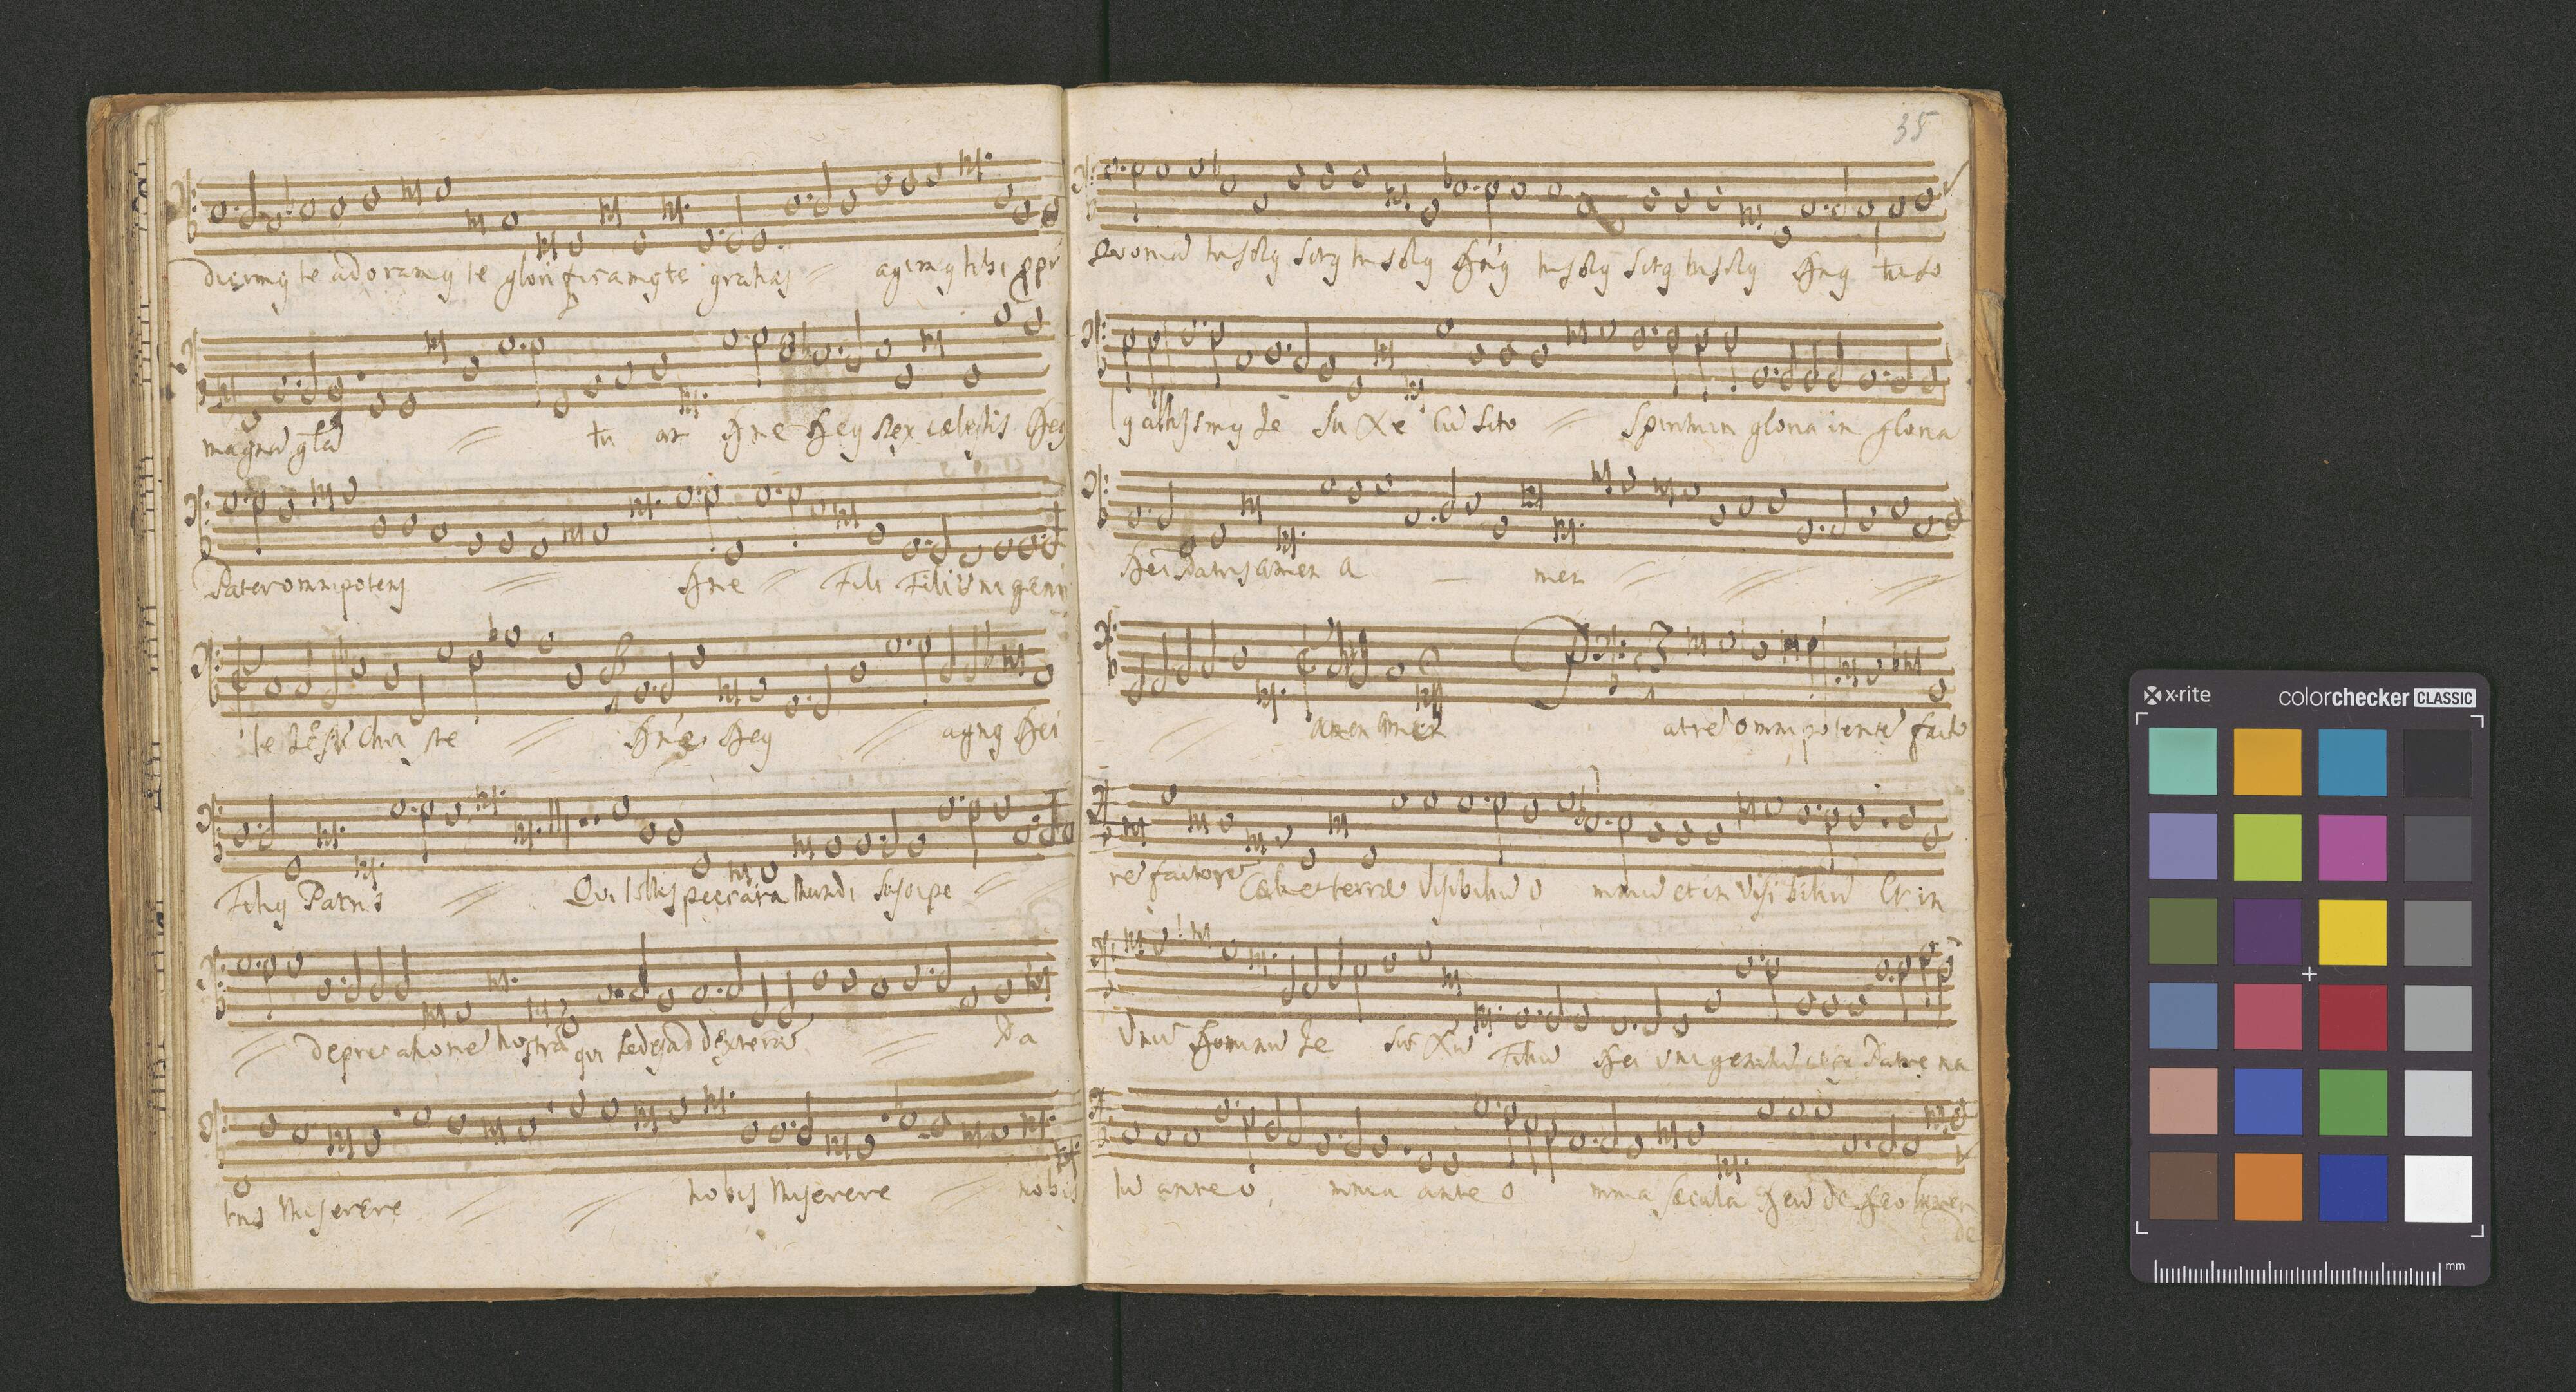 dicimꝯ te adoramꝯ te glorificamꝯ te gratias agimꝯ tibi ppr
magnã glã tu ar Dne Deꝯ Rex cælestis Deꝯ
Pater omnipotens Dne Fili Fili vni geni
te Jesu Chri ste Dne Deꝯ agnꝯ Dei
Filiꝯ Patris Qui tollis peccata Mundi suscipe
deprecationē nostrā qui sedes ad dexterā Pa
tris Miserere nobis Miserere nobis
35
Quoniã tu solꝯ sctꝯ tu solꝯ Dnꝯ tu solꝯ sctꝯ tu solꝯ Dnꝯ tu so
lꝯ altissmꝯ Je su Xe Cũ scto Spiritu in gloria in gloria
Dei Patris amen a men
amen amen atrē omni potentē facto
rē factorē Cæli et terræ visibiliũ o mniũ et in visi biliũ Et in
Vnũ Dominũ Je sũ Xũ Filiũ Dei vni genitũ et ex Patre na
tũ ante o mnia ante o mnia sæcula Deũ de Deo lumen
de
3
1
x-rite
colorchecker CLASSIC
mm